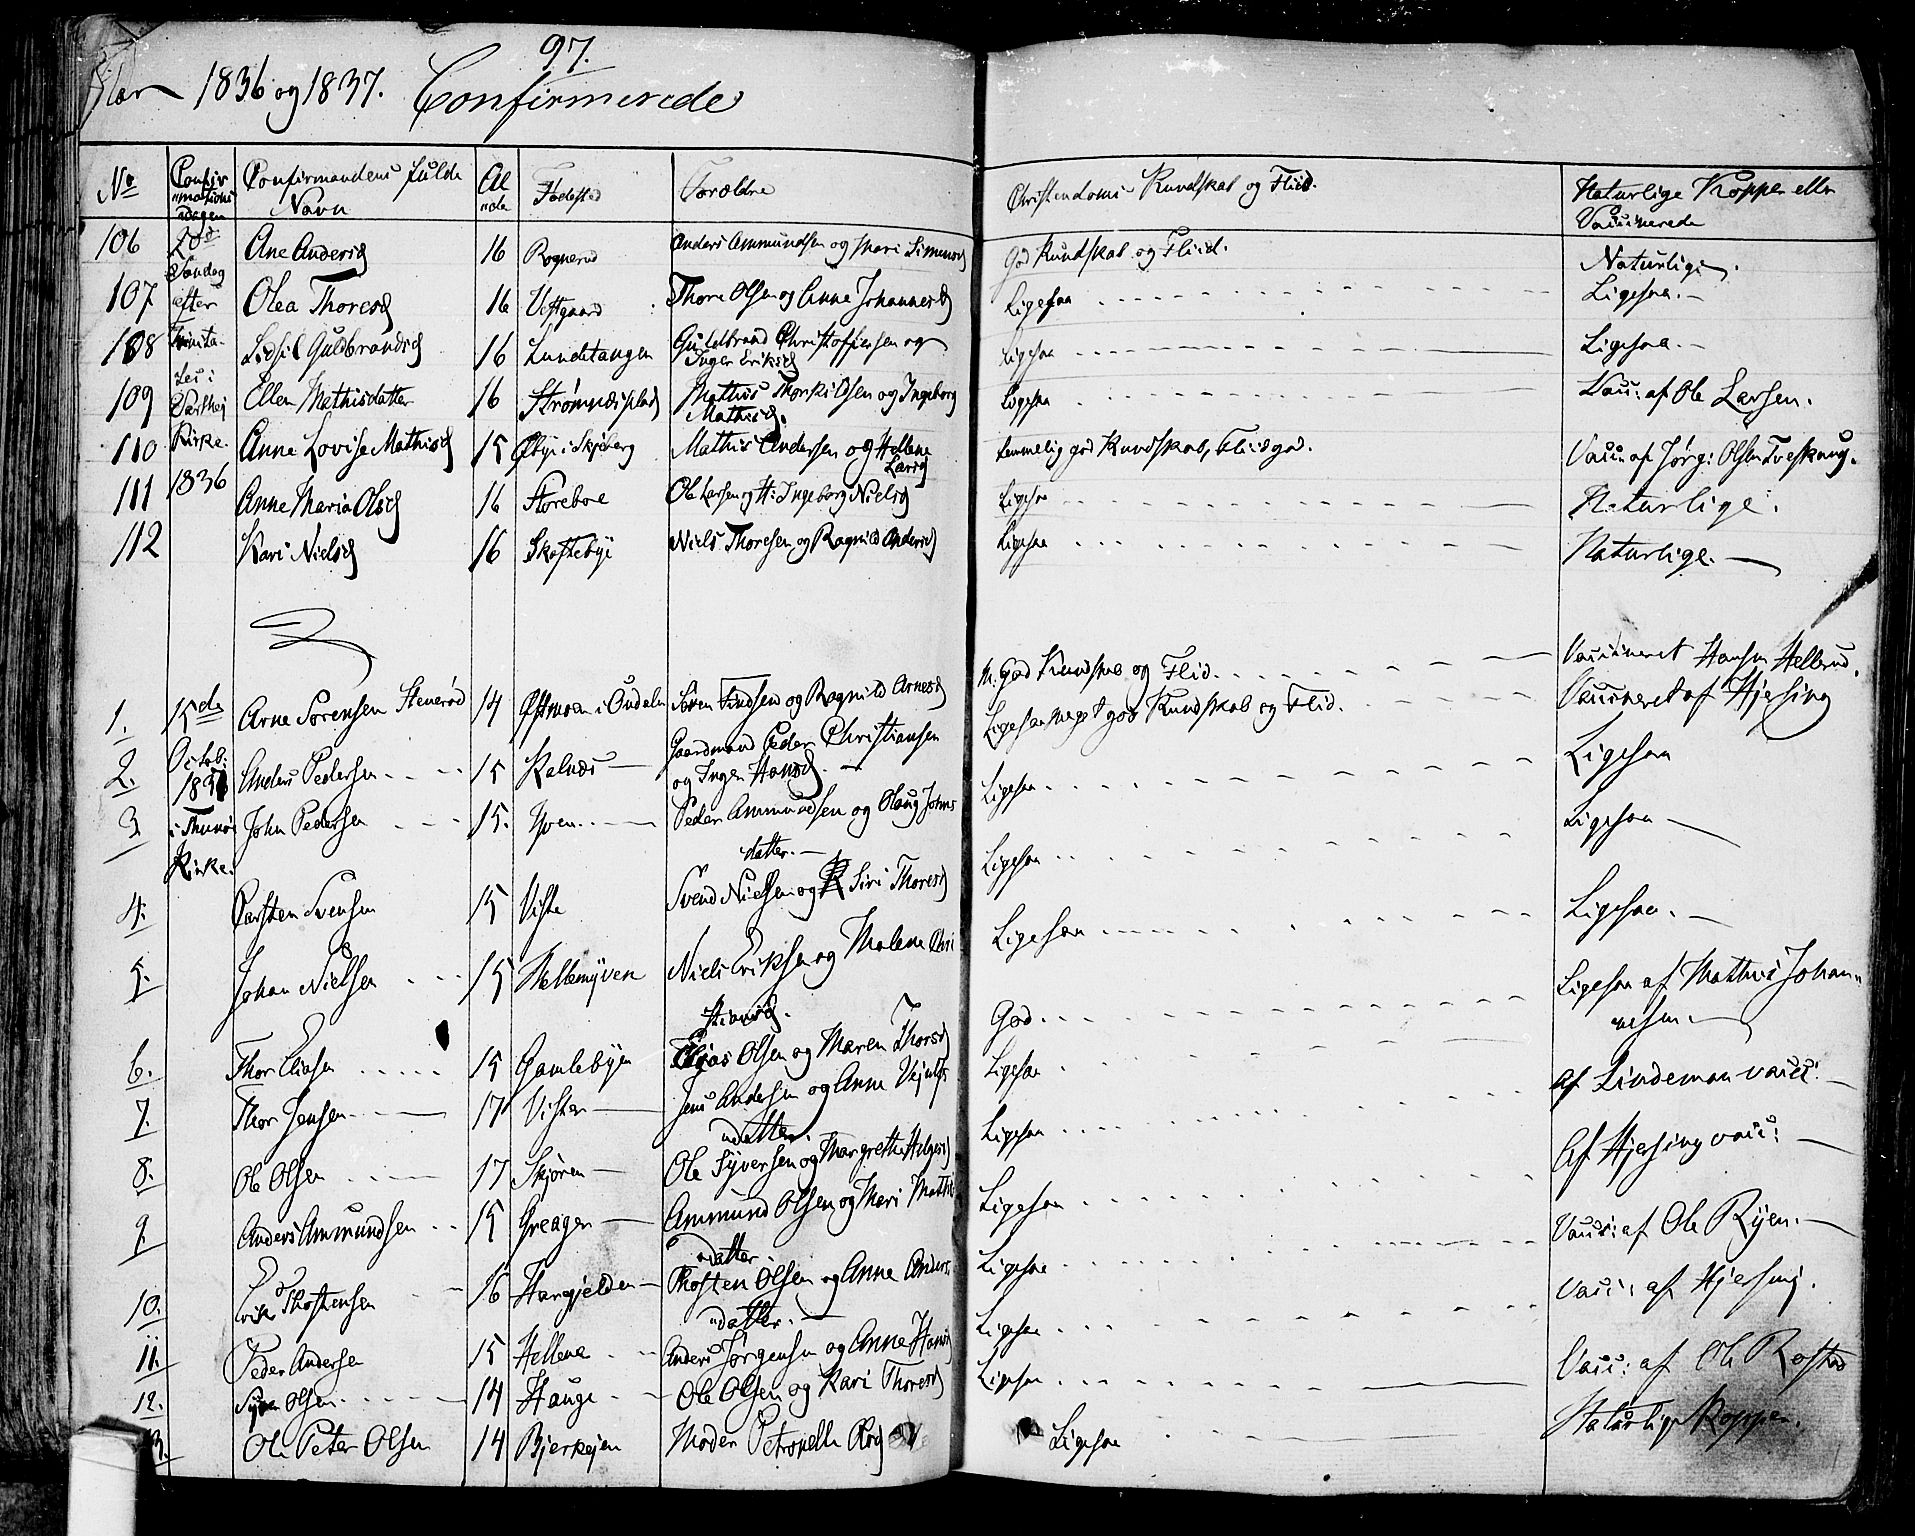 97.
Aar 1836 og 1837. Confirmerede
No Confirmationsdagen Confirmandens fulde Navn Alder Fødested Forældre Christendoms Kundskab og Fliid. Naturlige Kopper eller Vaccinerede
106 Ane Andersd 16 Rognerud Anders Ammundsen og Mari Simensd God Kundskab og Fliid. Naturlige.
Søndag efter Trinitatis i Varteig Kirke 1836
107 Olea Thoresd 16 Thore Olsen og Anne Johannesd Ligesaa Ligesaa.
108 Sidsil Guldbrandsd 16 Lundetangen Guldbrand Christoffersen og Inger Eriksd Ligesaa Ligesaa.
109 Ellen Mathisdatter 16 Strømnæsplads Mathis Thorkildsen og Ingeborg Mathisd. Ligesaa Vacc: af Ole Larsen.
110 Anne Lovise Mathisd 15 Øbye i Skjeberg Mathis Andersen og Hellene Larsd temmelig god Kundskab, Fliid god. Vacc: af Jørg: Olsen Tveskoug.
111 Anne Maria Olsd 16 Storeboe Ole Larsen og H: Ingeborg Nielsd Ligesaa Naturlige.
112 Kari Nielsd 16 Skoftebye Niels Thoresen og Ragnild Andersd Ligesaa Naturlige.
15de Octob: 1837 i Thunø Kirke.
1. Arne Sørensen Stenerød 14 Østmoen i Søren og Ragnild Arnesd M. God Kundskab og Flid. Vaccineret Hansen Hellerud.
2. Anders Pedersen 15 Kalnæs Gaardmand Peder Christiansen og Inger Hansd. Ligesaa meget god Kundskab og Flid. Vaccineret af Hjersing
3 John Pedersen 15. Yven Peder Ammundsen og Olaug Johnsdatter. Ligesaa Ligesaa
4. Carsten Svensen 15 Viste Svend Nielsen og Siri Thoresd Ligesaa Ligesaa
5. Johan Nielsen 15 Hellemyren Niels Eriksen og Malene Christiansd. Ligesaa Ligesaa.
6. Thor Eliasen 15 Gamlebyen Elias Olsen og Maren Thorsd God. Ligesaa af Mathis Johannesen.
7. Thor Jensen 17 Vister Jens Andersen og Anne Ligesaa af Lindeman vacc:
8. Ole Olsen 17 Skjøren Ole Syversen og Margrethe Helgesd Ligesaa Af Hjersing vacc:
9. Anders Ammundsen 15 Greager Ammund Olsen og Mari Mathisdatter Ligesaa Vacc: af Ole Ryen.
10. Erik Thostensen 16 Hargjelden Thosten Olsen og Anne Andersdatter. Ligesaa Vacc: af Hjersing.
11. Peder Andersen 15 Hellene Anders Jørgensen og Anne Hansd Ligesaa Vacc: af Ole Rostad
12. Syver Olsen 14 Hauge Ole Olsen og Kari Thoresd Ligesaa Naturlige Kopper.
13. Ole Peter Olsen 14 Bjerkejen Moder Petronelle Ligesaa